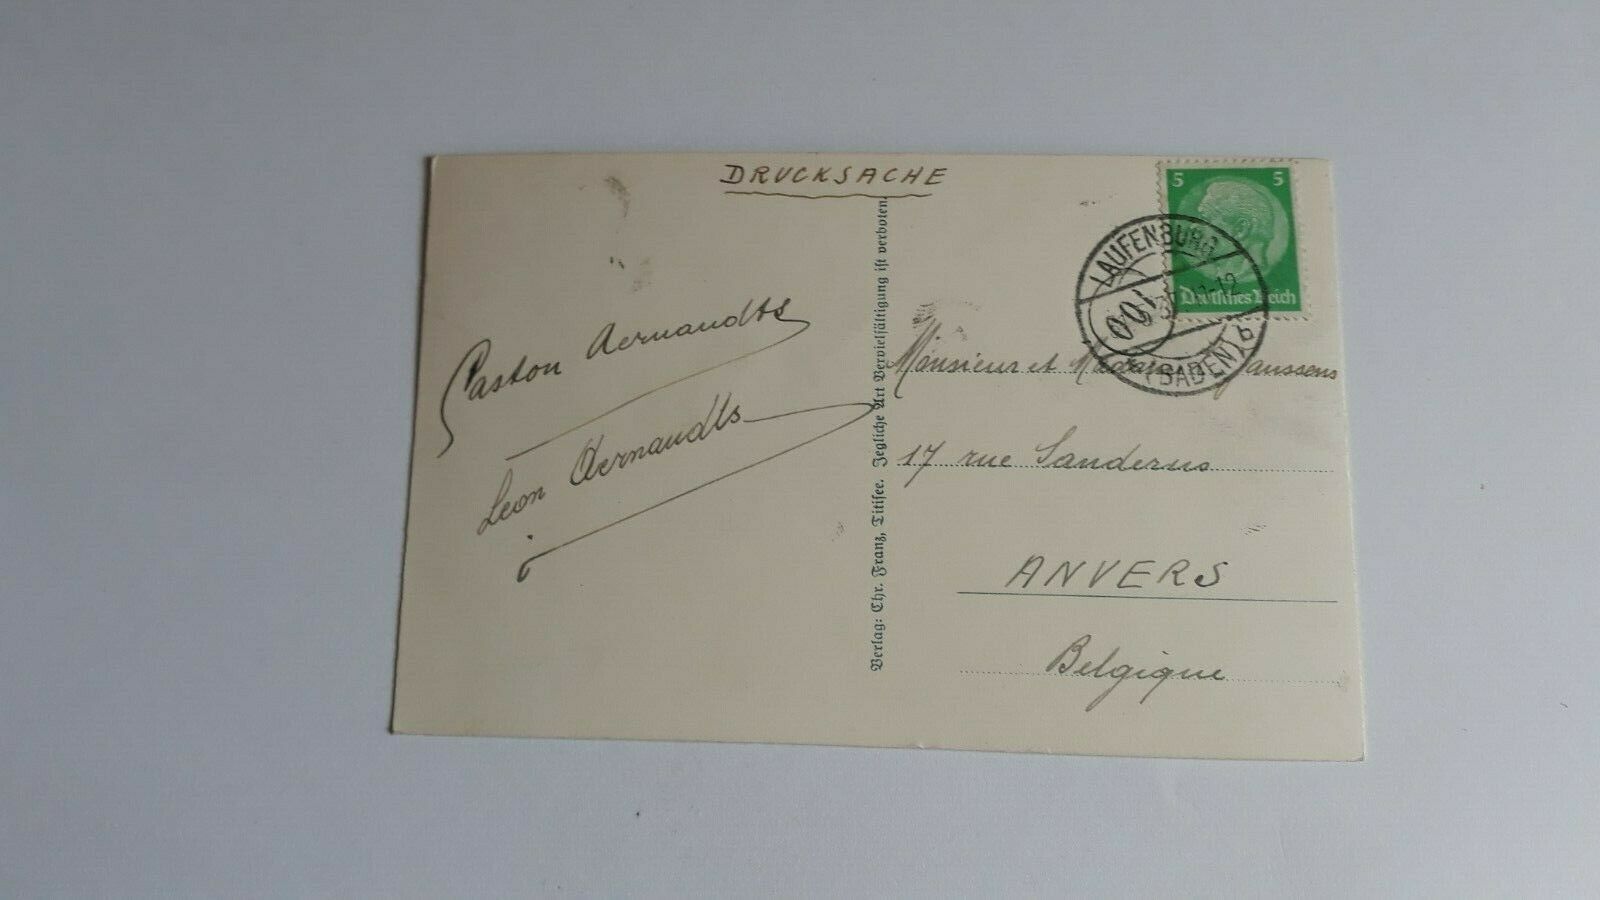 DRUCKSACHE
5 5
Deutsches Reich
LAUFENBURG
(BADEN) b
Gaston Aernandts
Leon Aernandts
Verlag: Chr. Franz, Titisee. Jegliche Art Vervielfältigung ist verboten.
Monsieur et Madame Janssens
17 rue Sanderus
ANVERS
Belgique